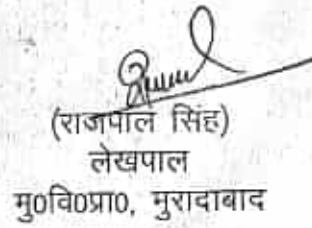 (राजपाल सिंह)
लेखपाल
मु0वि0प्रा0, मुरादाबाद